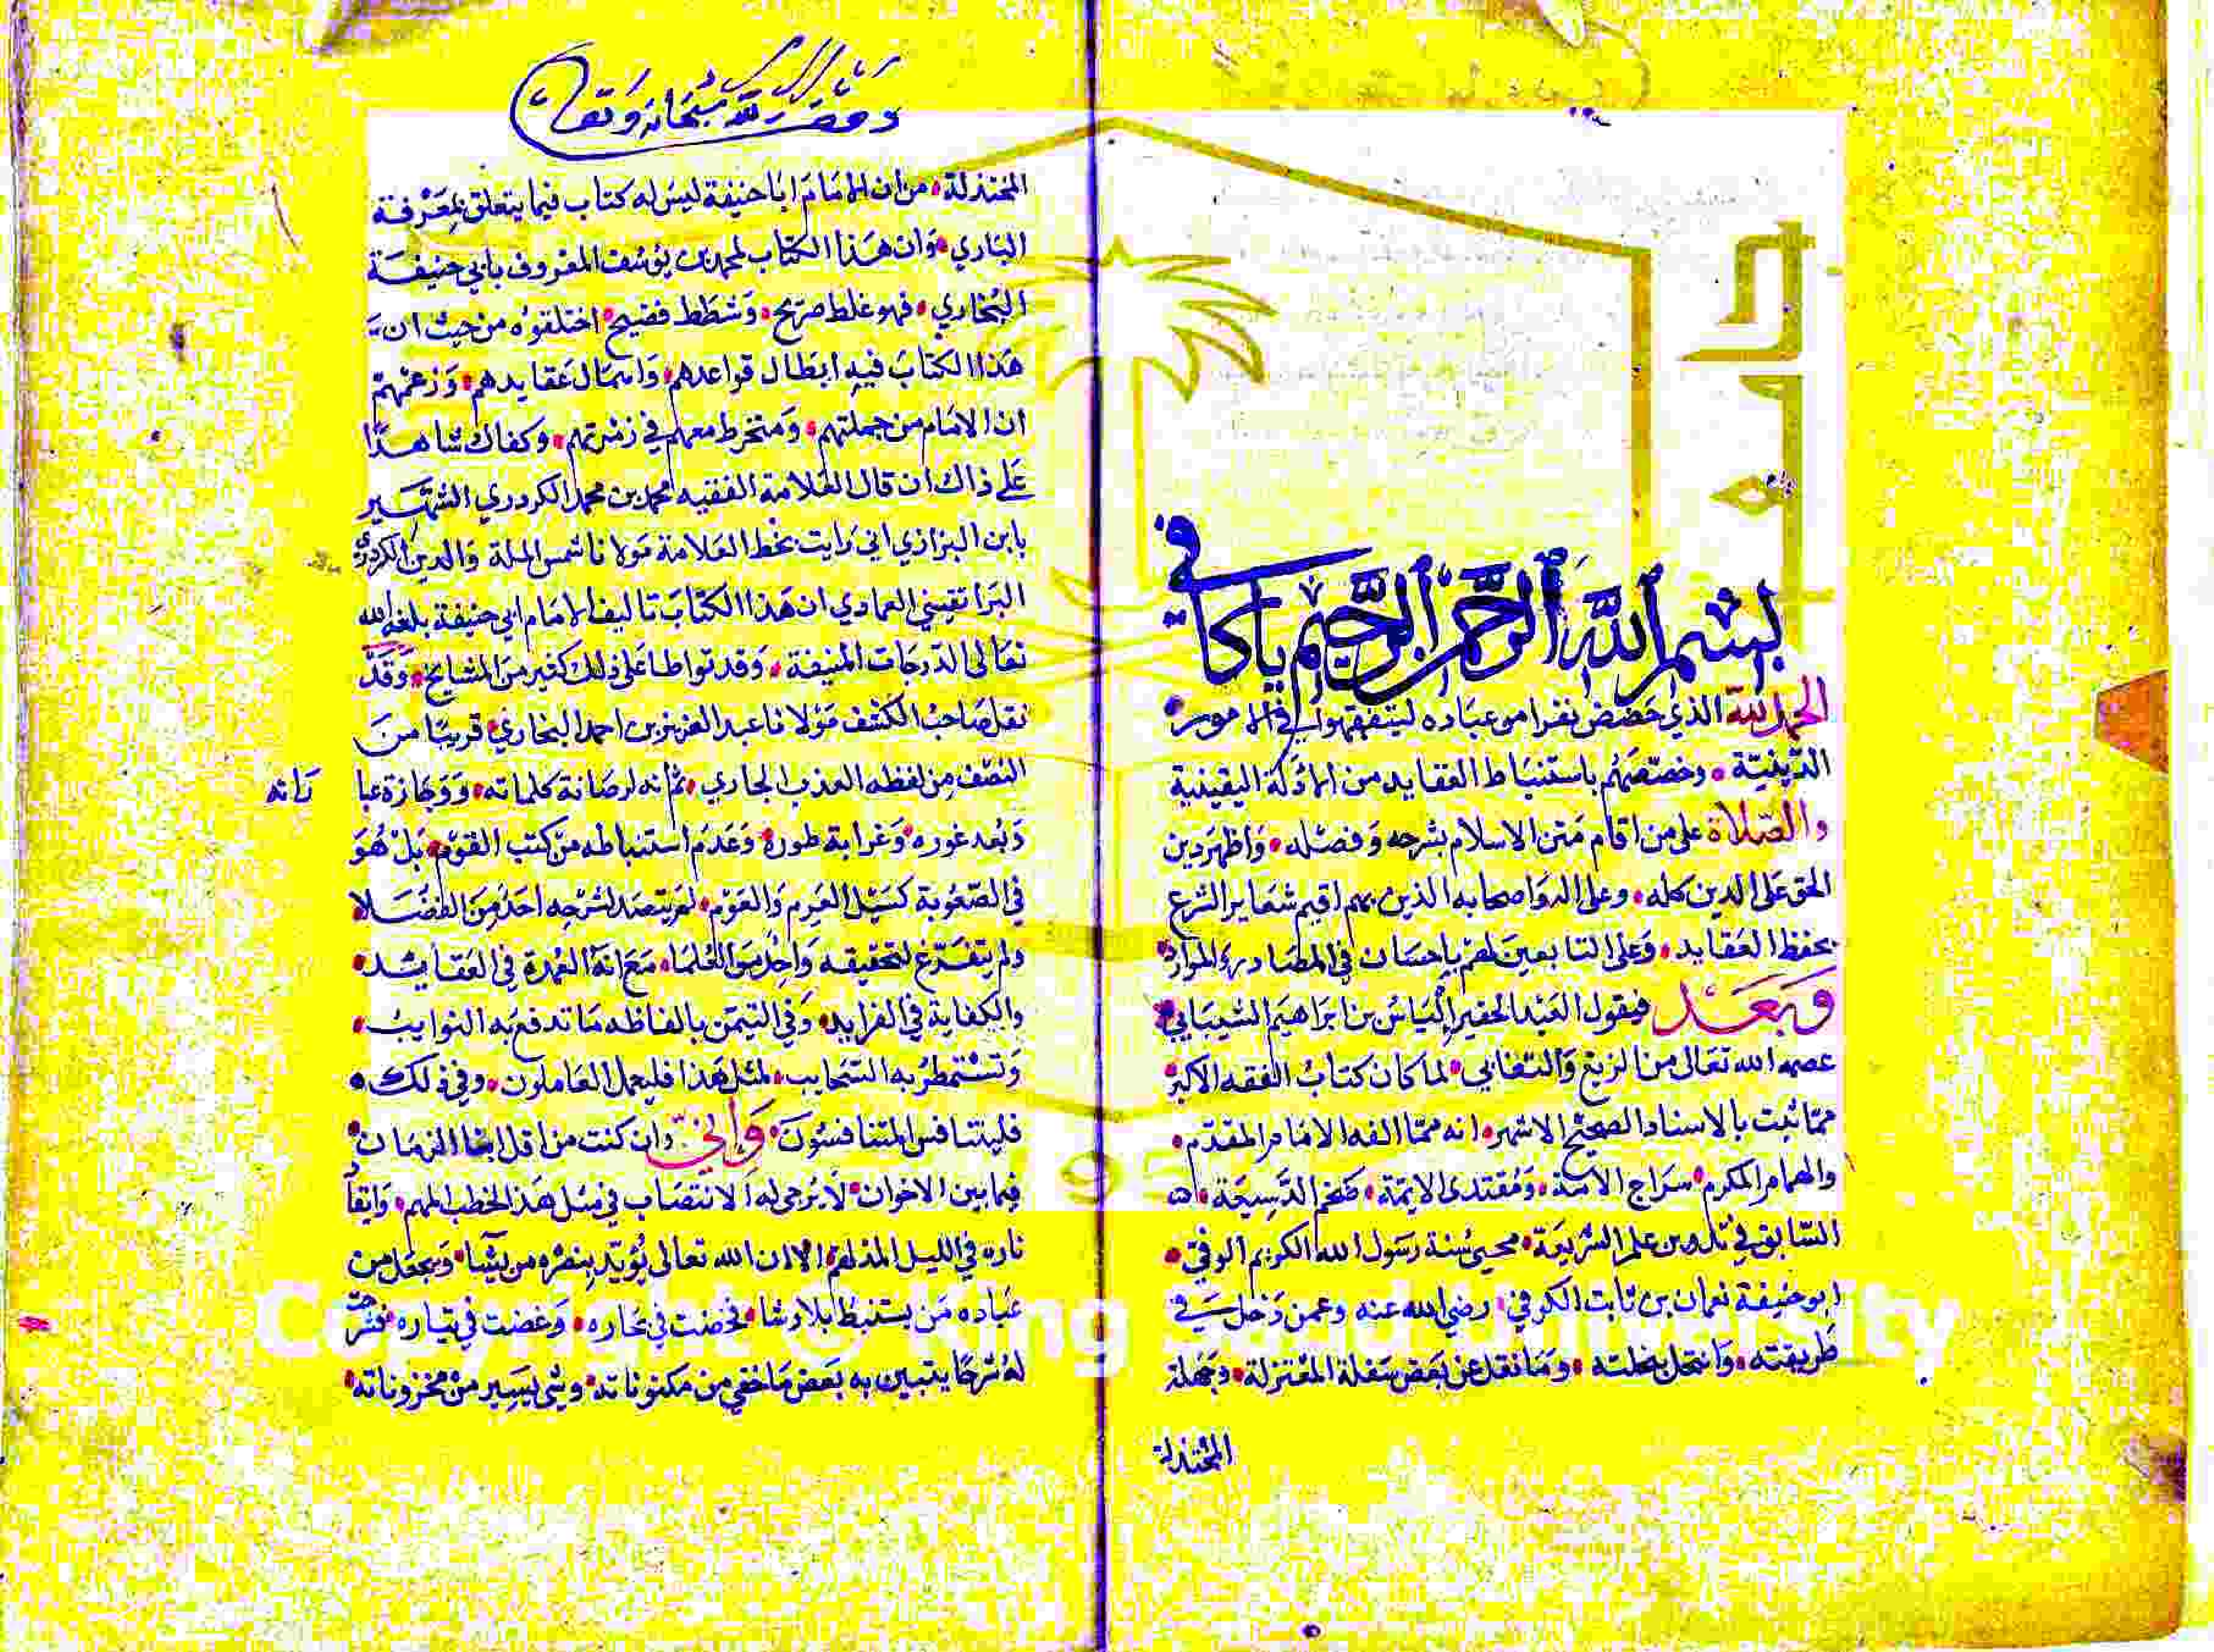 بسم الله الرحمن الرحيم يا كافي
الحمد لله الذي خصص نفرا من عباده ليتفقهوا في الامور
الدينية وخصصهم باستنباط العقايد من الادلة اليقينية
والصلاة على من اقام متن الاسلام بشرحه وفصله واظهر دين
الحق على الدين كله وعلى اله واصحابه الذين بهم اقيم شعاير الشرع
بحفظ العقايد وعلى التابعين لهم باحسان في المصادر والموارد
وبعد فيقول العبد الحقير إلياس بن ابراهيم السينابي
عصمه الله تعالى من الزيغ والتغابي لما كان كتاب الفقه الاكبر
مما ثبت بالاسناد الصحيح الاشهر انه مما الفه الامام المقدم
والهمام المكرم سراج الامة ومقتدى الايمة ضخم الدسيعة
السابق في تدوين علم الشريعة محيي سنة رسول الله الكريم الوفي
ابو حنيفة نعمان بن ثابت الكوفي رضي الله عنه وعمن دخل في
طريقته وانتحل بنحلته وما نقل عن بعض سفلة المعتزلة وجهلة
المختذلة
وقف لله سبحانه وتعالى
المختذلة من ان الامام ابا حنيفة ليس له كتاب فيما يتعلق بمعرفة
الباري وان هذا الكتاب لمحمد بن يوسف المعروف بابي حنيفة
البخاري فهو غلط صريح وشطط فضيح اختلقوه من حيث ان
هذا الكتاب فيه ابطال قواعدهم عقايدهم وزعمهم
ان الامام من جملتهم ومنخرط معهم في زمرتهم وكفاك شاهدا
على ذاك ان قال العلامة الفقيه محمد بن محمد الكردري الشهير
بابن البزازي اني رايت بخط العلامة مولانا شمس الملة والدين الكردري
البراتقيني العمادي ان هذا الكتاب تاليف الامام ابي حنيفة بلغه الله
تعالى الدرجات المنيفة وقد تواطا على ذلك كثير من المشايخ وقد
نقل صاحب الكشف مولانا عبد العزيز بن احمد البخاري قريبا من
النصف من لفظه العذب الجاري ثم انه لرصانة كلماته ووجازة عبا
راته
وبعد غوره وغرابة طوره وعدم استنباطه من كتب القوم بل هو
في الصعوبة كسيل العرم والعوم لم يتصد لشرحه احد من الفضلا
ولم يتفرغ لتحقيقه واحد من العلما مع انه العمدة في العقايد
والكفاية في الفرايد وفي التيمن بالفاظه ما تدفع به النوايب
وتستمطر به السحايب لمثل هذا فليعمل العاملون وفي ذلك
فليتنافس المتنافسون واني وان كنت من اقل ابنا الزمان
فيما بين الاخوان لا يرجى له الانتصاب في مثل هذا الخطب المهم وايقاد
ناره في الليل المدلهم الا ان الله تعالى يؤيد بنصره من يشا ويجعل من
عباده من يستنبط بلا رشا فخضت في بحاره وغضت في تياره فشرحت
له شرحا يتبين به بعض ما خفي من مكنوناته وشي يسير من مخزوناته